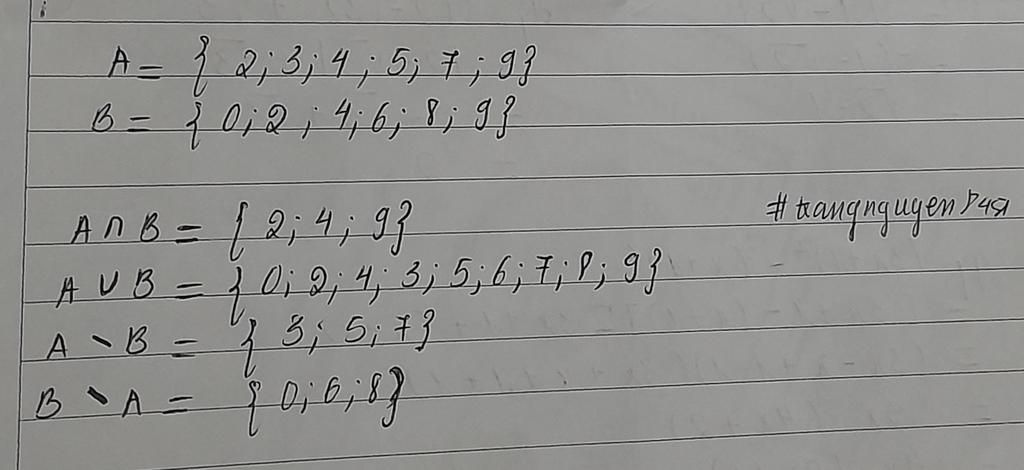 A = { 2; 3; 4; 5; 7; 9}
B = { 0; 2; 4; 6; 8; 9}
A ∩ B = { 2; 4; 9}
A ∪ B = { 0; 2; 4; 3; 5; 6; 7; 8; 9}
A \ B = { 3; 5; 7}
B \ A = { 0; 6; 8}